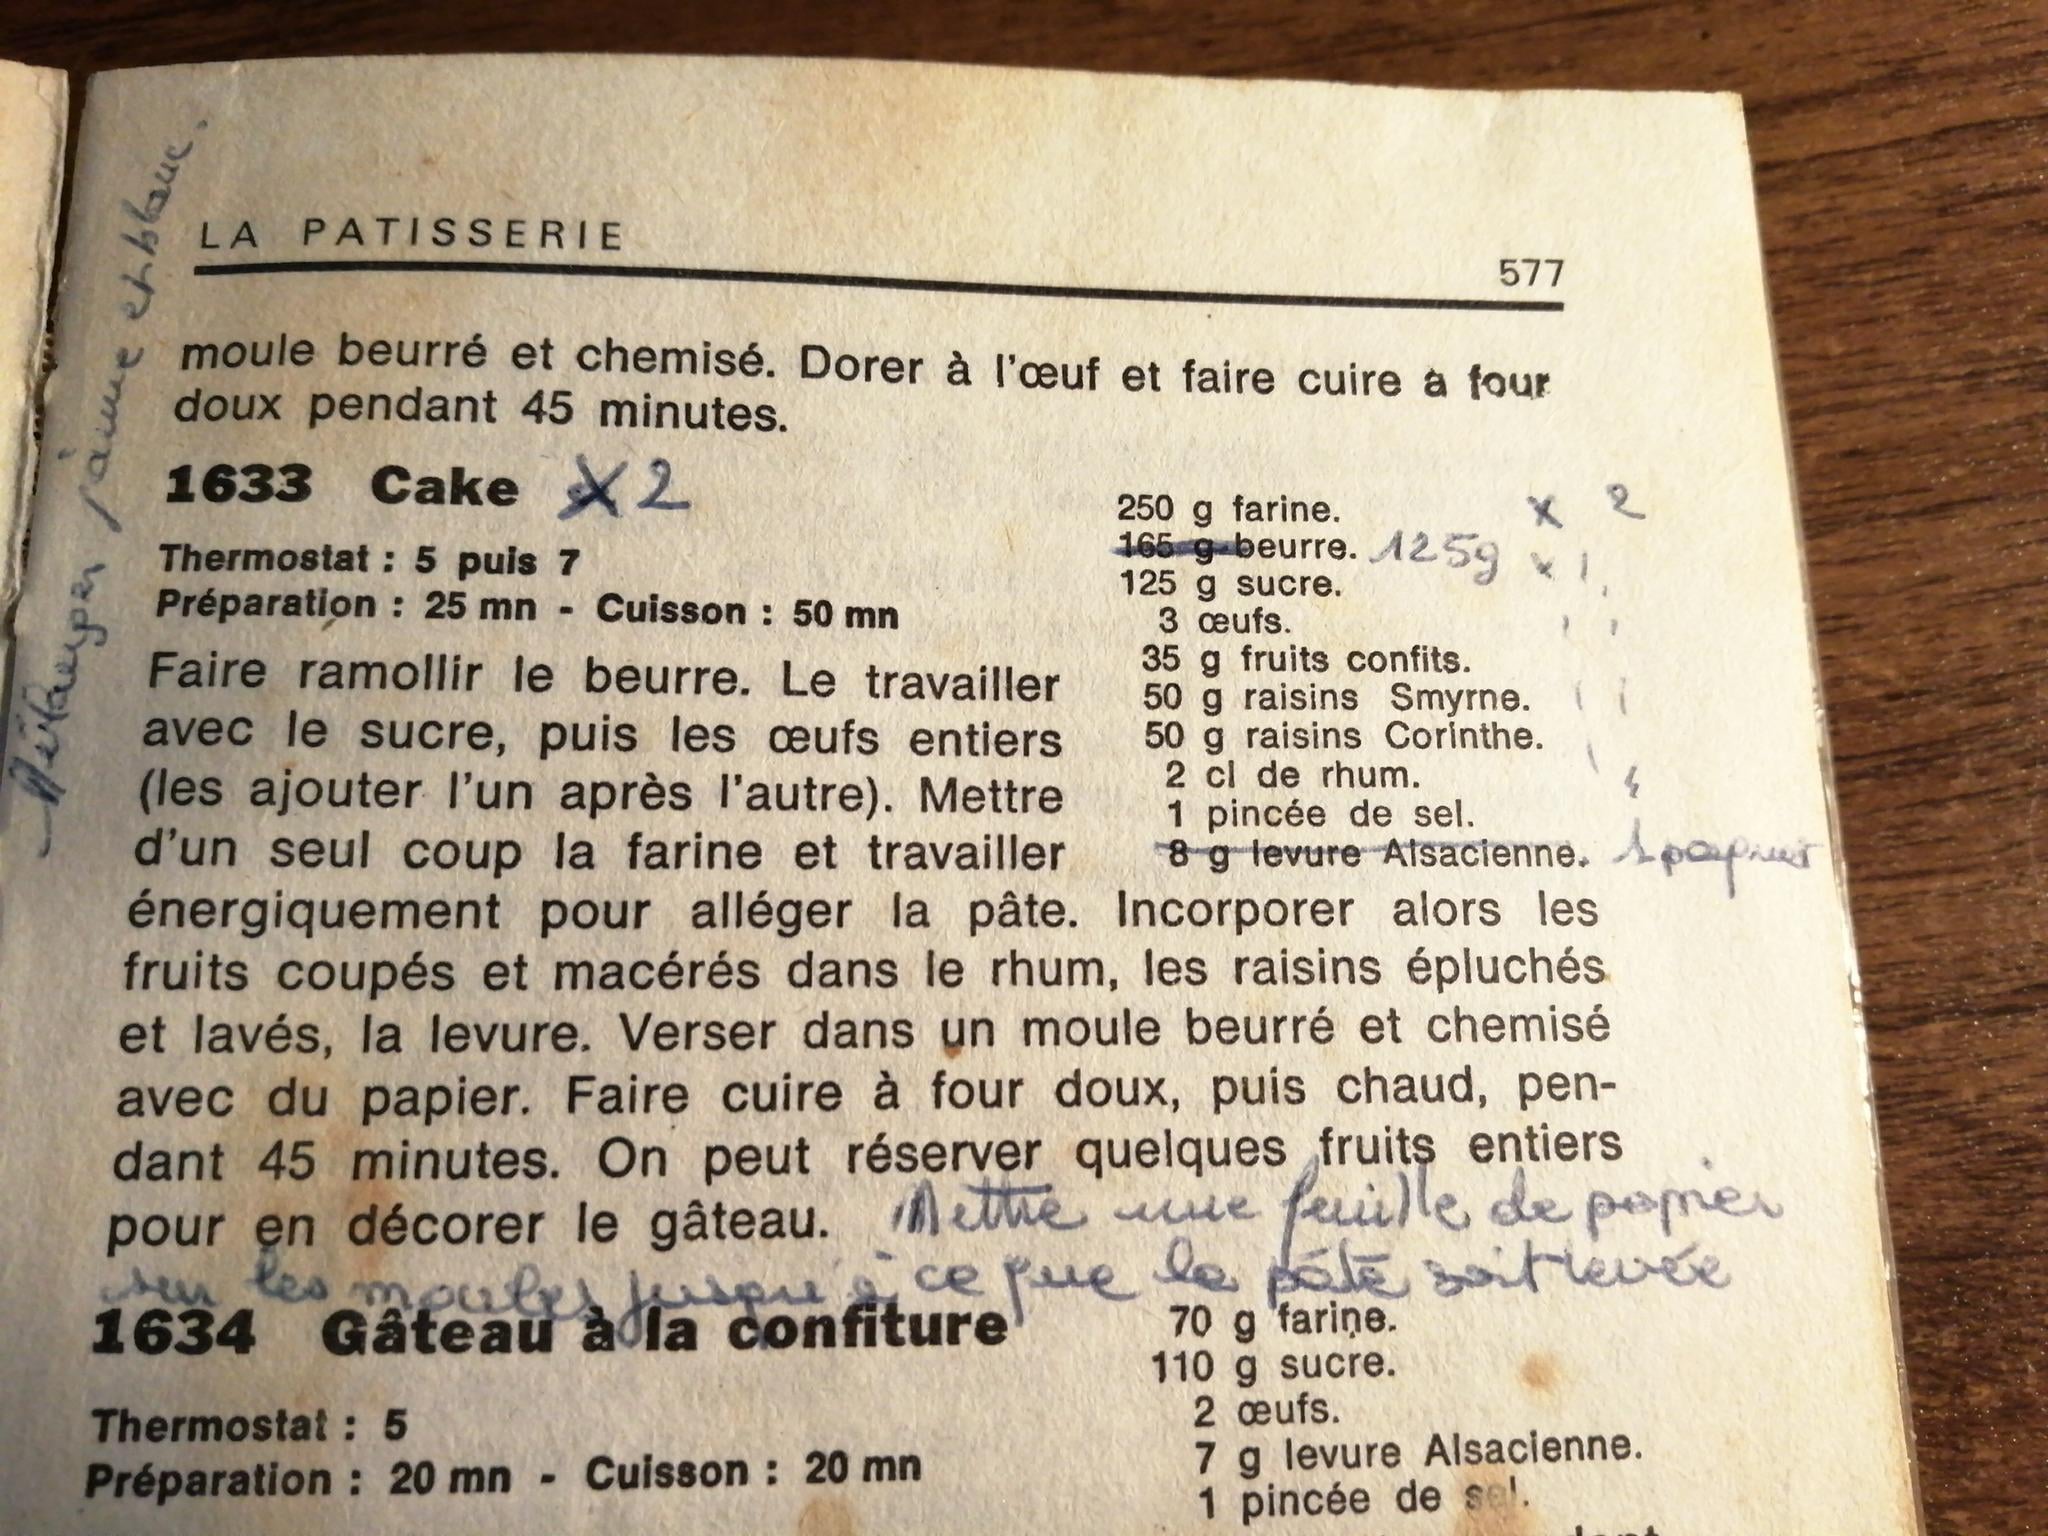 Mélanger jaune et blanc.
LA PATISSERIE
577
moule beurré et chemisé. Dorer à l'œuf et faire cuire à four
doux pendant 45 minutes.
1633 Cake X 2
Thermostat : 5 puis 7
Préparation : 25 mn - Cuisson : 50 mn
250 g farine. x 2
165 g beurre. 125g x 1
125 g sucre.
3 œufs.
35 g fruits confits.
50 g raisins Smyrne.
50 g raisins Corinthe.
2 cl de rhum.
1 pincée de sel.
8 g levure Alsacienne. 1 paquet
Faire ramollir le beurre. Le travailler
avec le sucre, puis les œufs entiers
(les ajouter l'un après l'autre). Mettre
d'un seul coup la farine et travailler
énergiquement pour alléger la pâte. Incorporer alors les
fruits coupés et macérés dans le rhum, les raisins épluchés
et lavés, la levure. Verser dans un moule beurré et chemisé
avec du papier. Faire cuire à four doux, puis chaud, pen-
dant 45 minutes. On peut réserver quelques fruits entiers
pour en décorer le gâteau. Mettre une feuille de papier
sur les moules jusqu'à ce que la pâte soit levée
1634 Gâteau à la confiture
Thermostat : 5
Préparation : 20 mn - Cuisson : 20 mn
70 g farine.
110 g sucre.
2 œufs.
7 g levure Alsacienne.
1 pincée de sel.